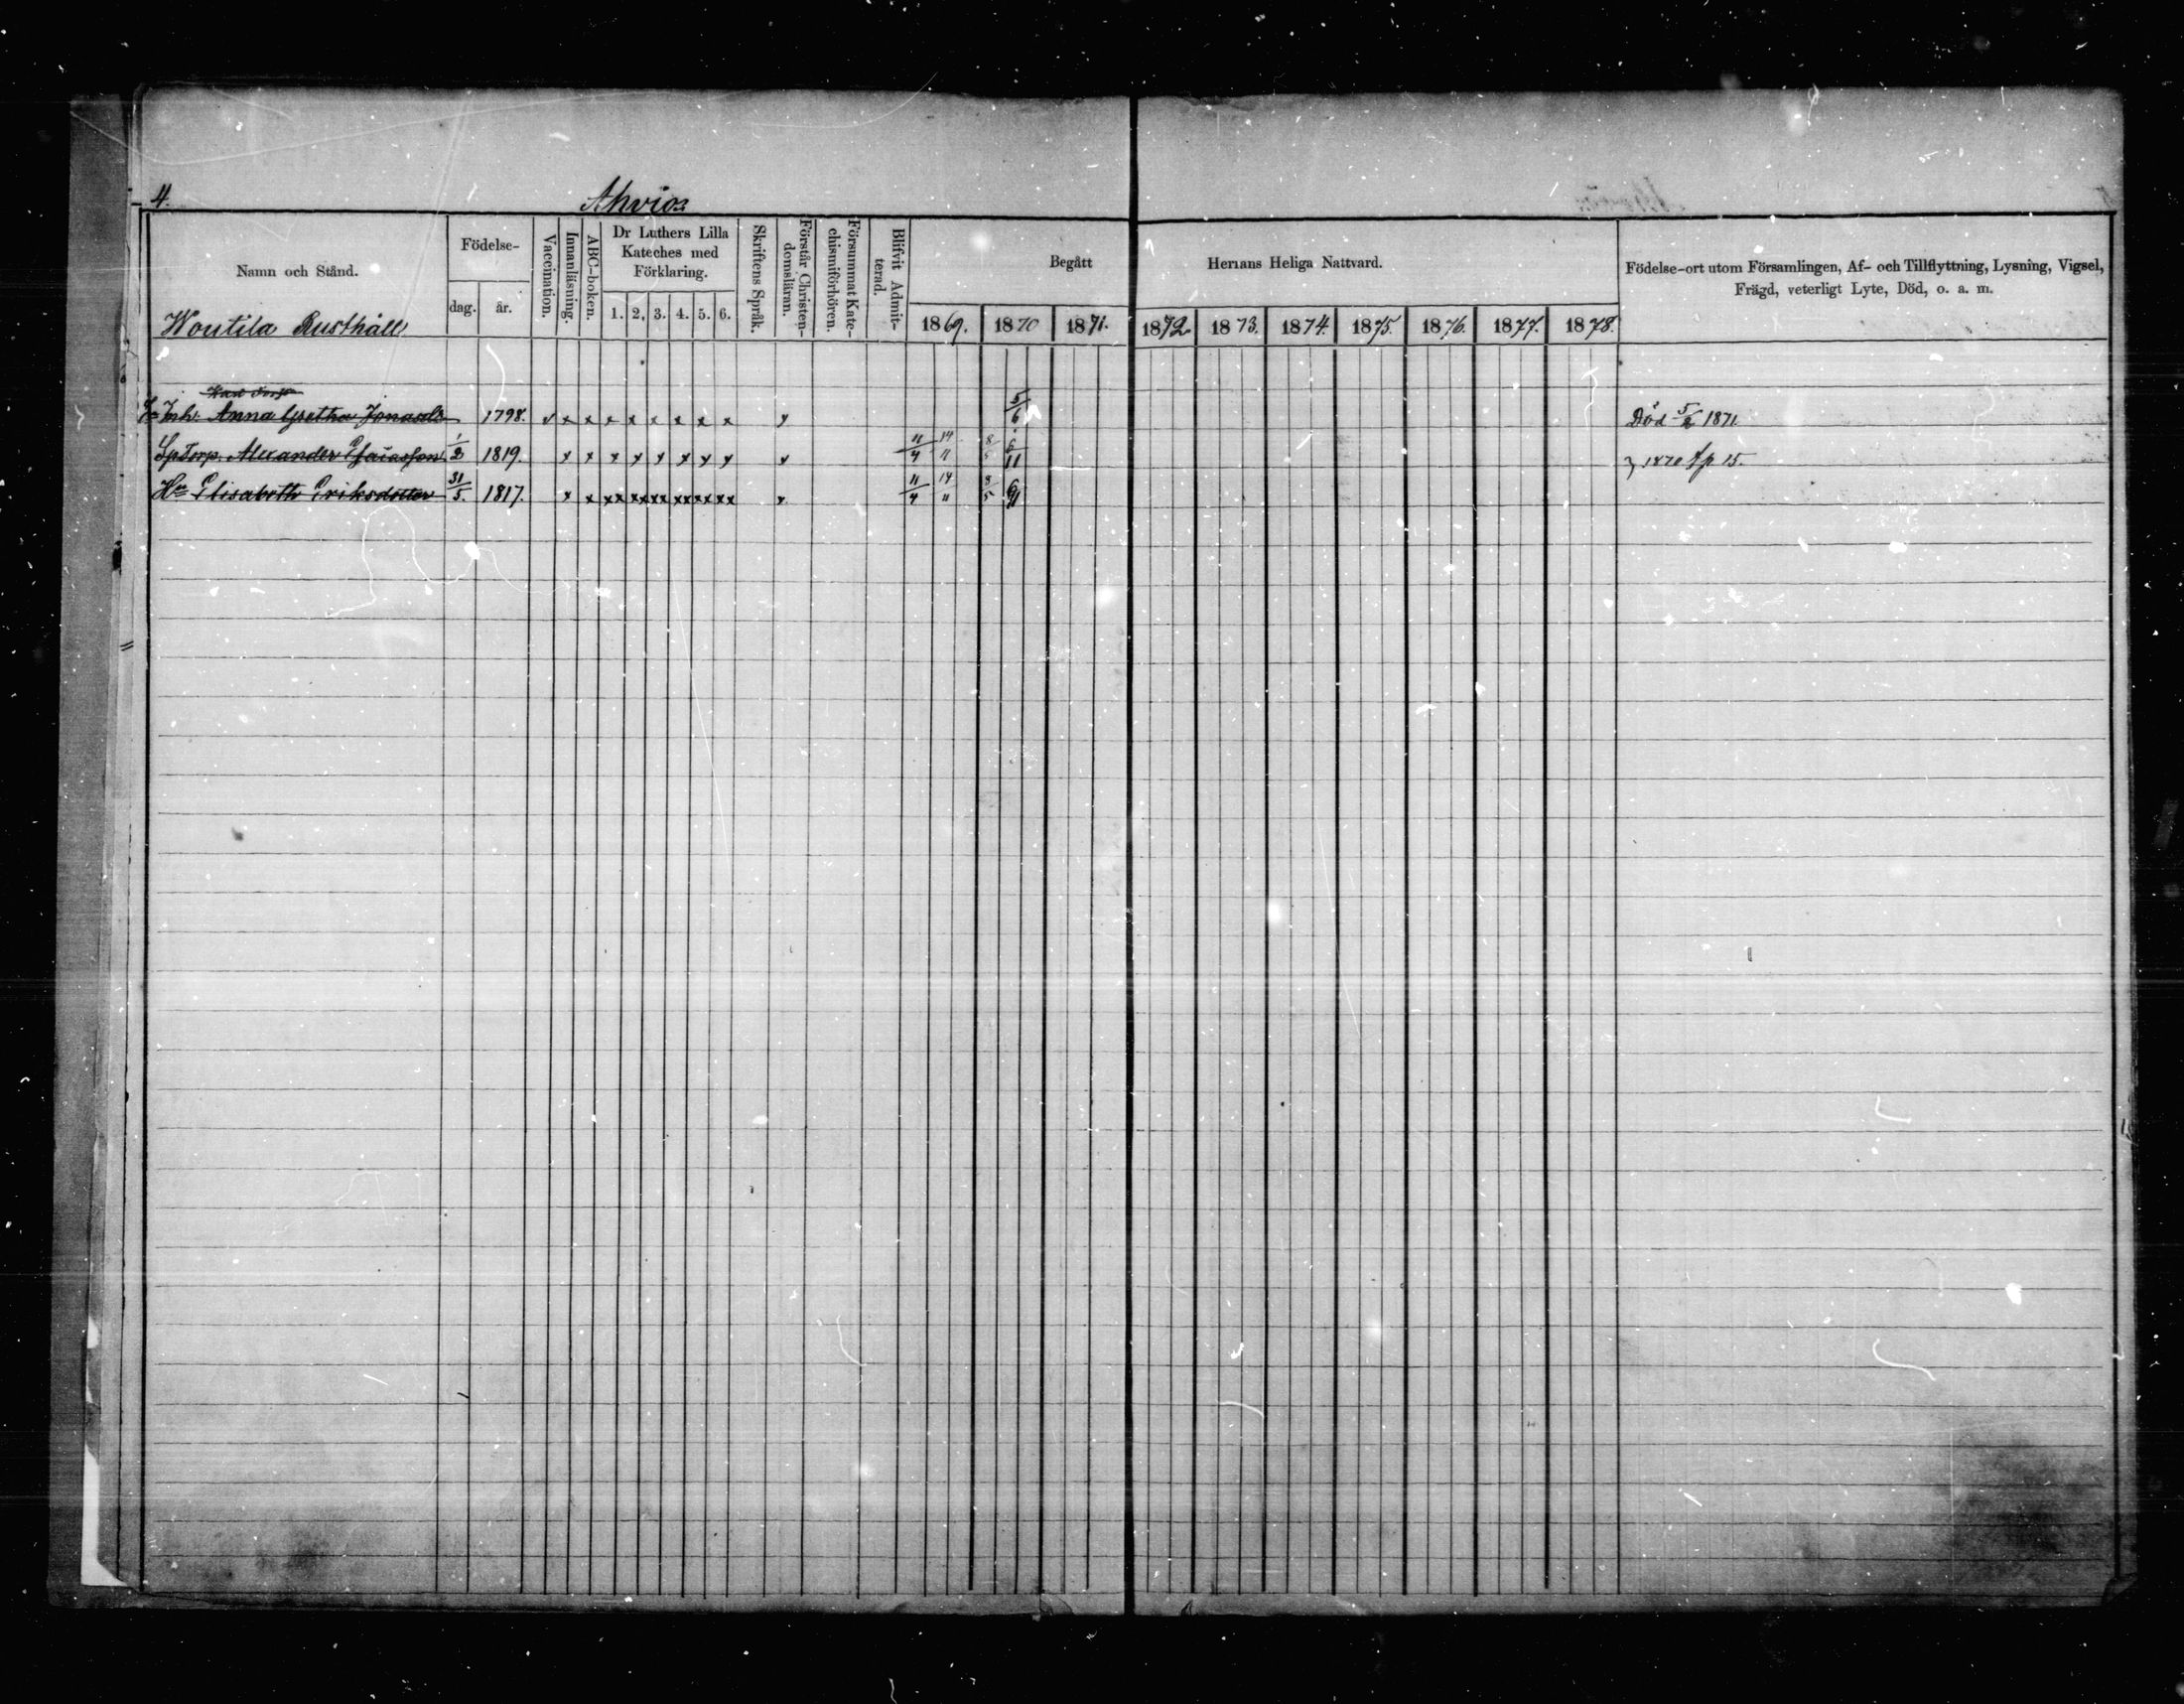 4.
Ahvios
Namn och Stånd.
Födelse-
dag. år.
Vaccination.
Innanläsning.
ABC-boken.
Dr Luthers Lilla
Kateches med
Förklaring.
1. 2. 3. 4. 5. 6.
Skriftens Språk.
Förstår Christen-
domsläran.
Försummat Kate-
chismiförhören.
Blifvit Admit-
terad.
Begått Herrans Heliga Nattvard.
1869. 1870 1871. 1872. 1873. 1874. 1875. 1876. 1877. 1878.
Födelse-ort utom Församlingen, Af- och Tillflyttning, Lysning, Vigsel,
Frägd, veterligt Lyte, Död, o. a. m.
Woutila Rusthåll
Inh. Anna Gretha Jonasdr 1798. x x x x x x x x x x 5/6 Död 5/2 1871
Sp Torp. Alexander Esaiasson 1/2 1819. x x x x x x x x x 11/4 14/11 8/5 6/11 1870 fp 15.
Hu Elisabeth Eriksdotter 31/5. 1817. x x xx xx xx xx xx xx x 11/4 14/11 8/5 6/11